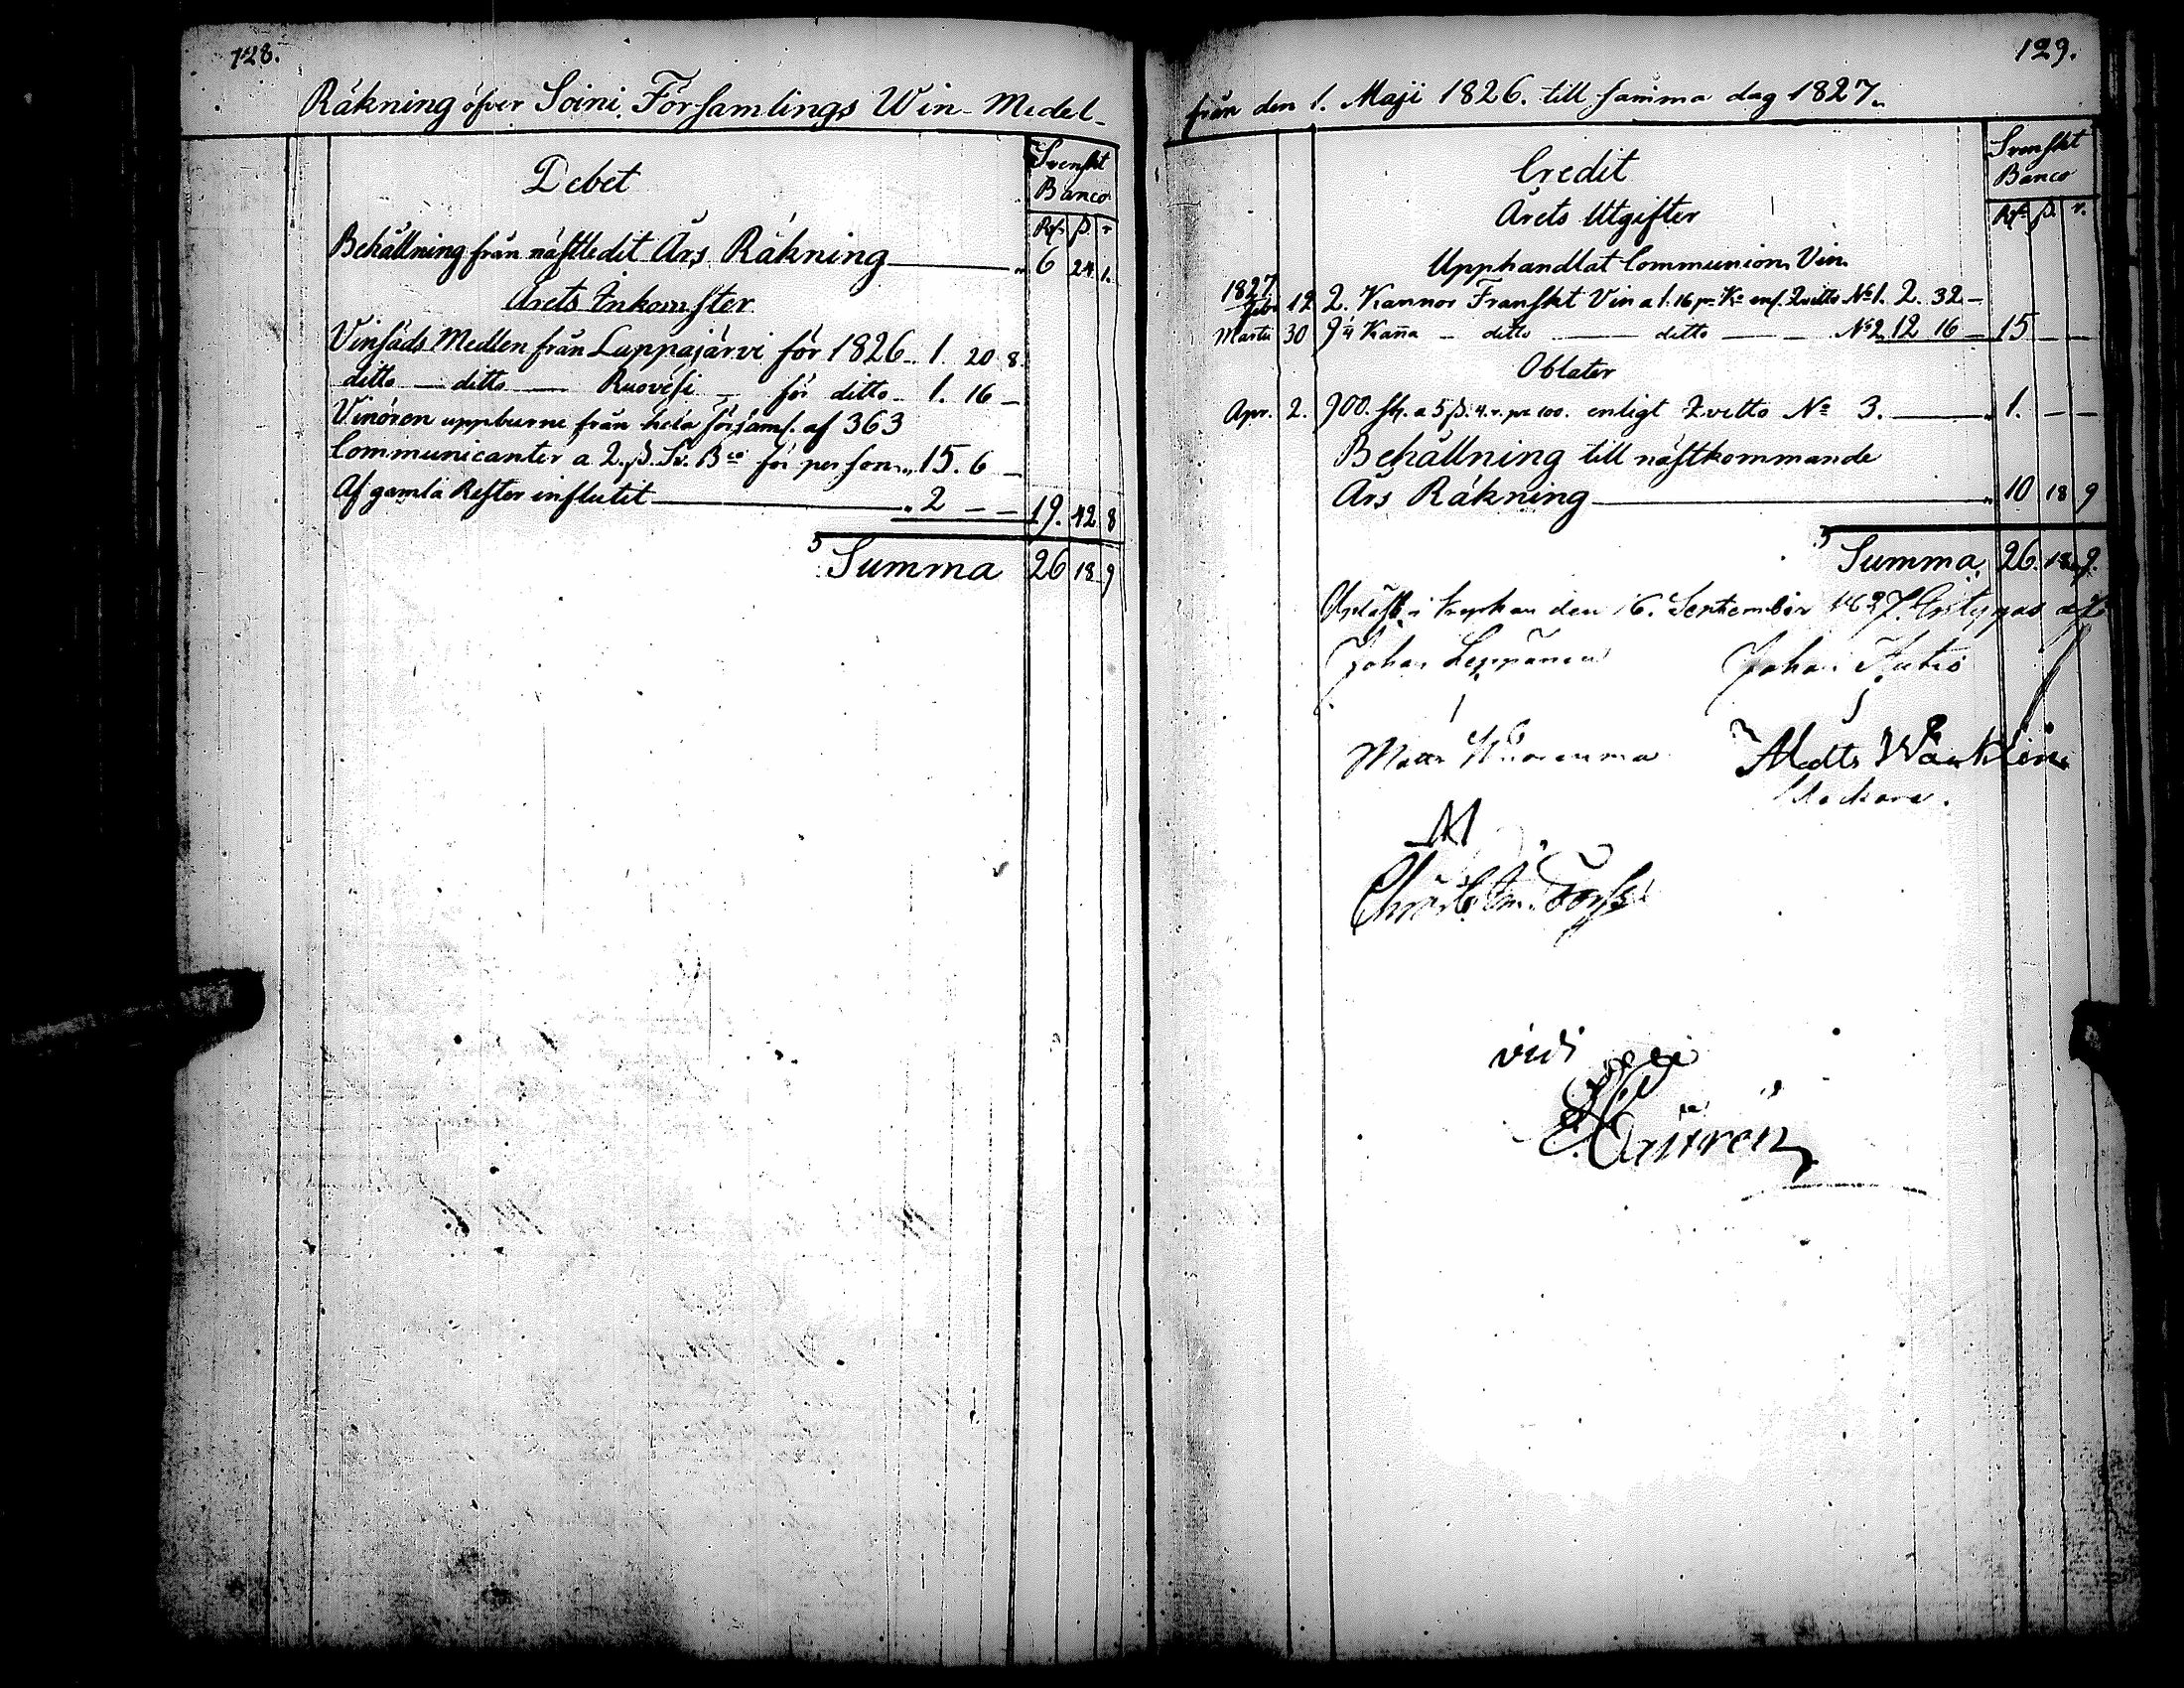 128.
Räkning öfver Soini Församlings Win-Medel
Debet
Svenskt
Banco
Rd. ß. r
Behållning från nästledit Års Räkning 6 24. 1.
Årets Inkomster
Vinsäds Medlen från Lappajärvi för 1826. 1. 20 8.
ditto — ditto — Ruovesi — för ditto. 1. 16 —
Vinören uppburne från hela församl. af 363
Communicanter a 2. ß. Sv. Bco för person. 15. 6 —
Af gamla Rester influtit 2 — — 19. 42 8
Summa 26 18 9
129.
från den 1. Maji 1826. till samma dag 1827.
Credit
Svenskt
Banco
Årets Utgifter
Rd. ß. r.
Upphandlat Communion Vin
1827
Febr 12 2. Kannor Franskt Vin a 1. 16 pr Ka enl. Qvitto No 1. 2. 32 —
Martii 30 9 1/4 Kanna — ditto — ditto — No 2. 12 16 — 15 — —
Oblater
Apr. 2. 900. st. a 5 ß. 4. r. pr 100. enligt Qvitto No 3. 1. — —
Behållning till nästkommande
Års Räkning 10 18 9
Summa 26. 18. 9.
Upläst i kyrkan den 16. September 1827. Betygas af
Johan Leppänen Johan
Matts Matts
M
vidi